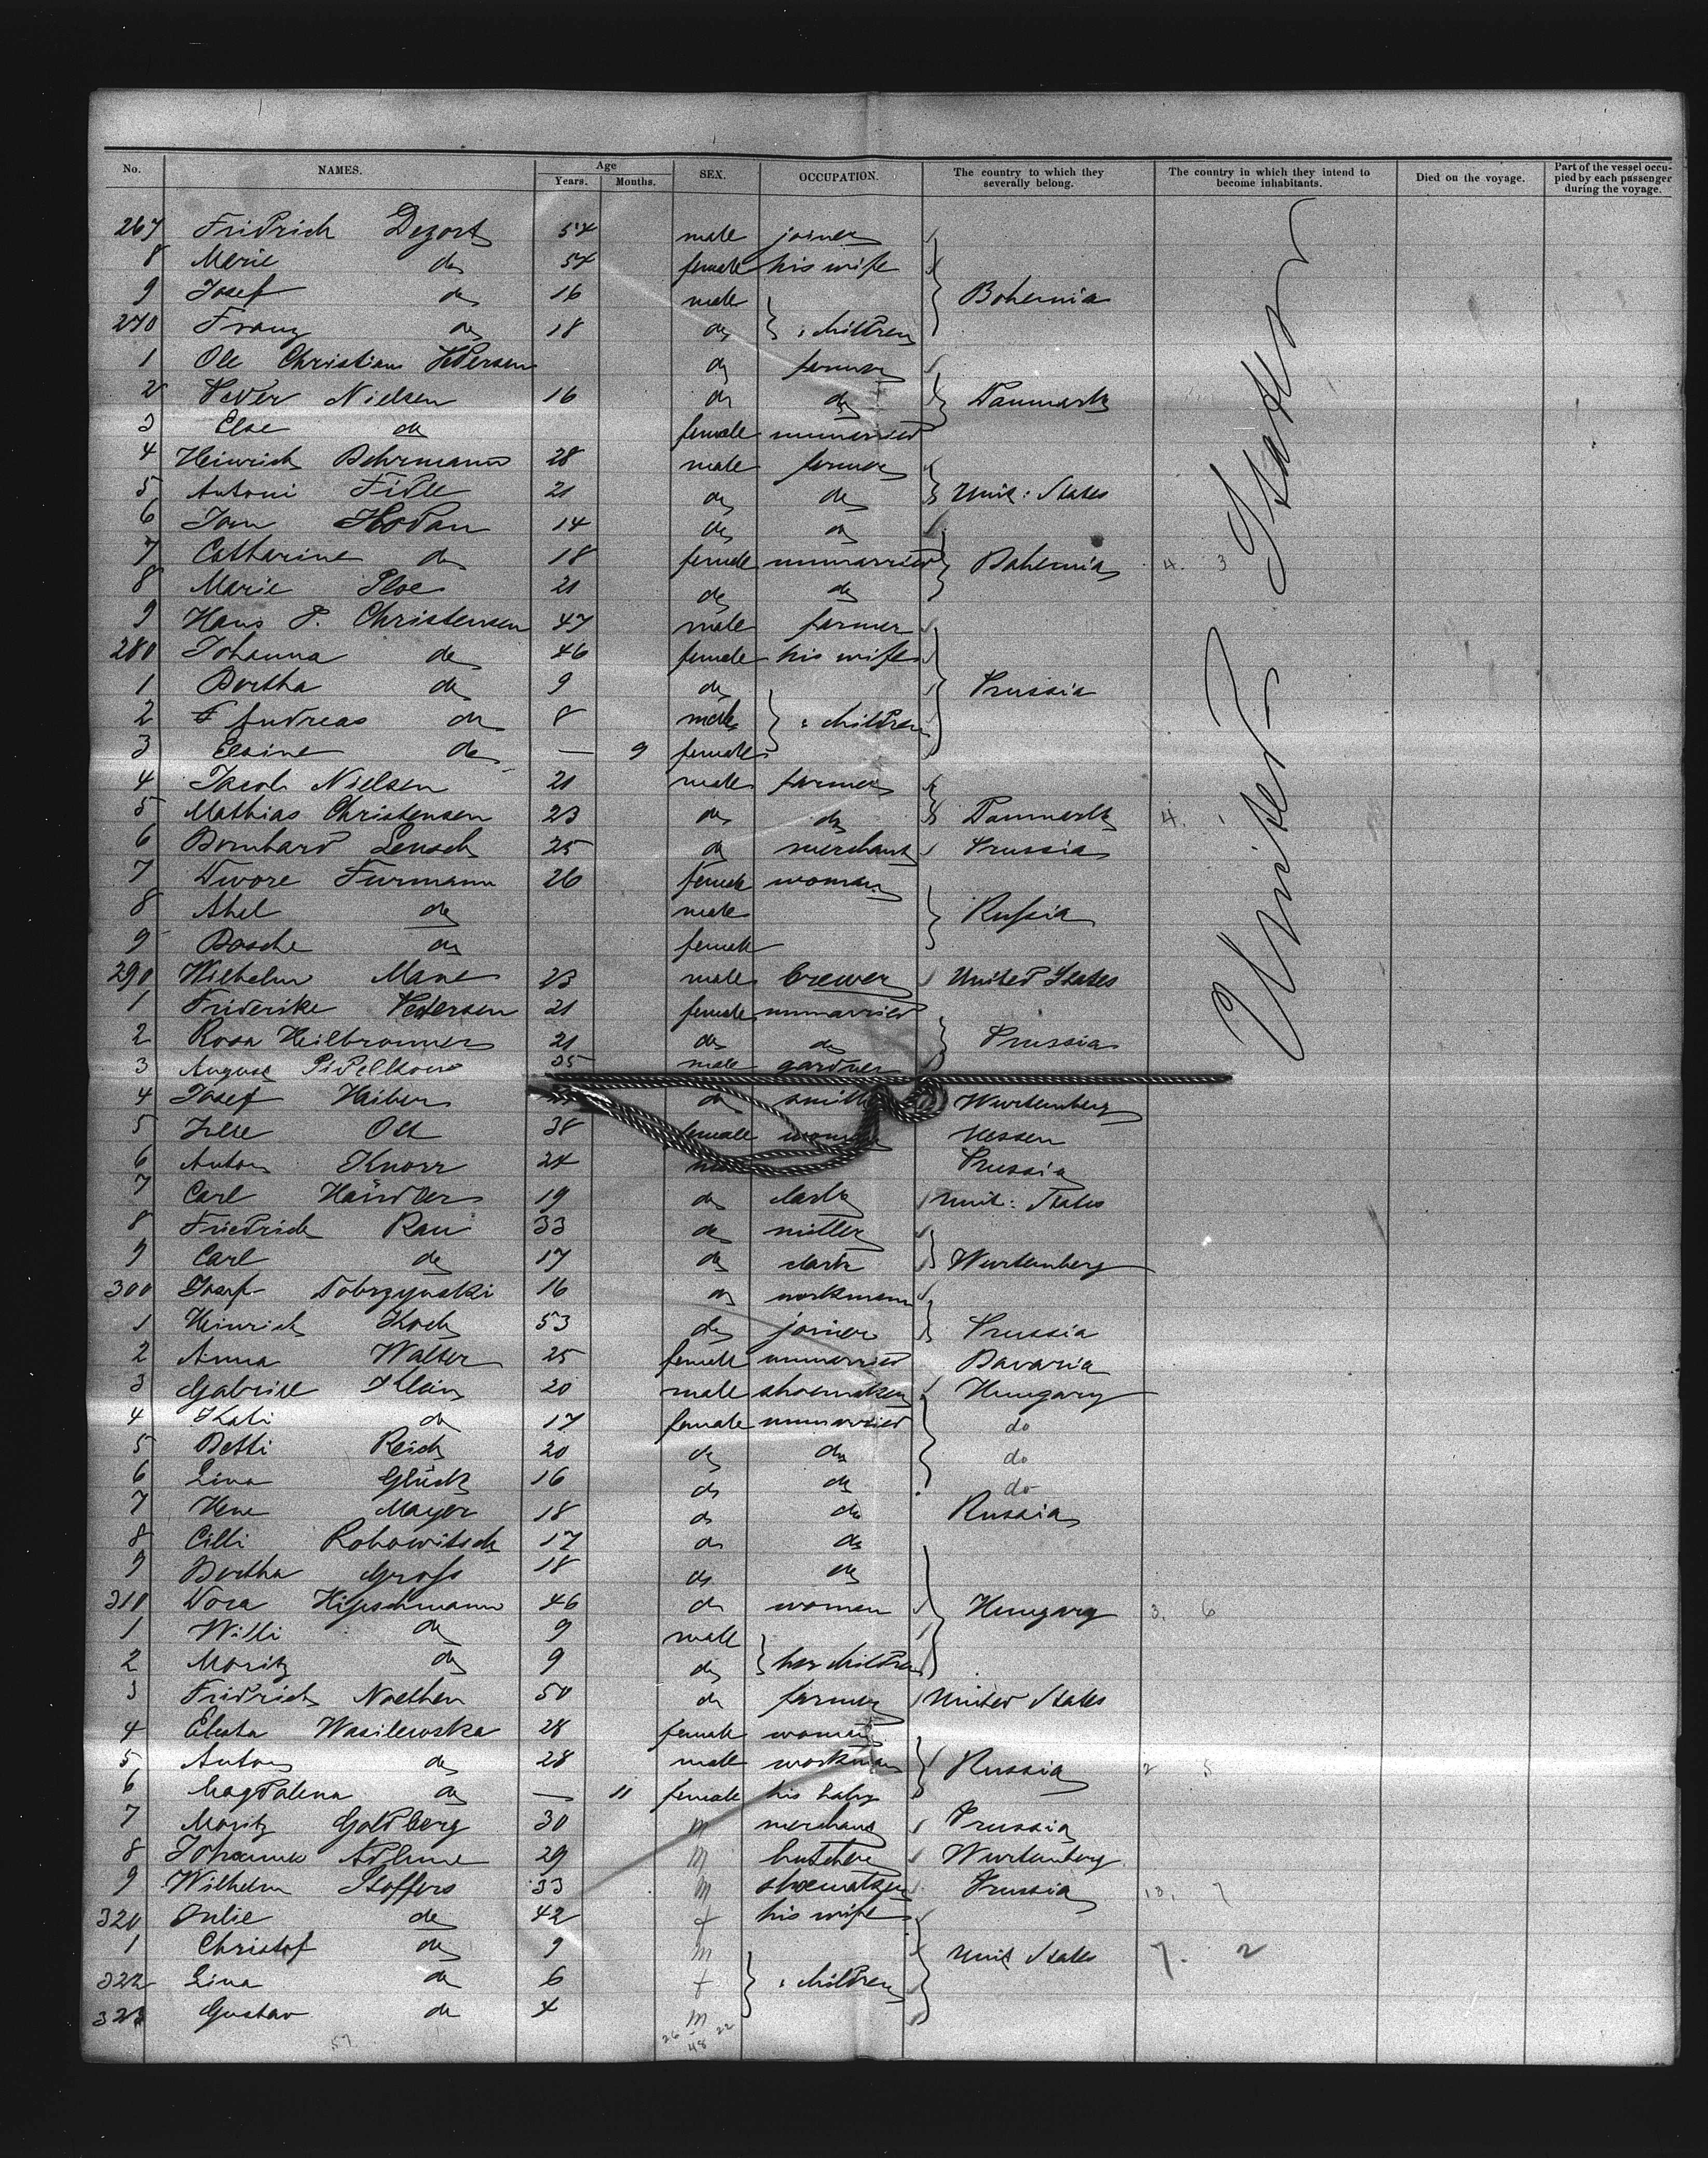 No. NAMES. Age Years. Months. SEX. OCCUPATION. The country to which they severally belong. The country in which they intend to become inhabitants. Died on the voyage. Part of the vessel occupied by each passenger during the voyage.
267 Fridrich Dezort 54 male joiner
8 Marie do 54 female his wife
9 Josef do 16 male Bohemia
270 Franz do 18 do : children
1 Ole Christian Petersen do farmer
2 Peter Nielsen 16 do do Danmark
3 Else do female unmarried
4 Heinrich Behrmann 28 male farmer
5 Antoni Fidle 21 do do Unit: States
6 Jan Hodan 14 do do
7 Catharine do 18 female unmarried Bohemia 4. 3
8 Marie do 21 do do
9 Hans P. Christensen 47 male farmer
280 Johanna do 46 female his wife
1 Bertha do 9 do Prussia
2 Andreas do 8 male : children
3 do — 9 female
4 Jacob Nielsen 21 male farmer
5 Mathias Christensen 23 do do Danmark 4.
6 Bernhard Lensch 25 do merchant Prussia
7 Dwore Furmann 26 female woman
8 Abel do male Russia
9 Basche do female
290 Wilhelm 23 male brewer United States
1 Friderike Petersen 21 female unmarried
2 Rosa Heilbronner 21 do do Prussia
3 August 35 male gardner
4 Josef Haiber do smith Wurtemberg
5 Ott 38 female woman Hessen
6 Anton Knorr 24 Prussia
7 Carl Händler 19 do clark Unit: States
8 Friedrich Rau 33 do miller
9 Carl do 17 do clark Wurtemberg
300 Josef Dobrzynski 16 do workmann
1 Heinrich Koch 53 do joiner Prussia
2 Anna Walter 25 female unmarried Bavaria
3 Gabriel Klein 20 male shoemaker Hungary
4 Kati do 17 female unmarried do
5 Betti Reich 20 do do do
6 Lina Glück 16 do do do
7 Mayer 18 do do Russia
8 Cilli Robowitsch 17 do do
9 Bertha Gross 18 do do
310 46 do woman Hungary 3. 6
1 Willi do 9 male
2 Moritz do 9 do her children
3 Fridrich Noethen 50 do farmer United States
4 Wasilewska 28 female woman
5 Anton do 28 male workman Russia 2 5
6 Magdalena do — 11 female his baby
7 Moritz Goldberg 30 m merchant Prussia
8 29 m butcher Wurtemberg
9 Wilhelm Stoffers 33 m shoemaker Prussia 10. 7
320 Julie do 42 f his wife
1 Christof do 9 m Unit States 7. 2
322 Lina do 6 f : children
323 Gustav do 4 m
57 26 22
48
United States